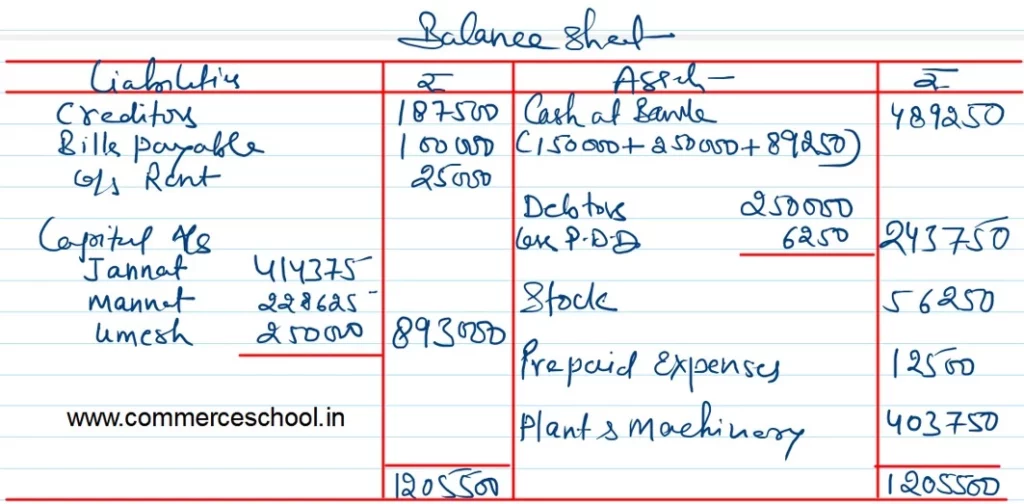 Balance Sheet
Liabilities ₹ Assets ₹
Creditors 187500 Cash at Bank 489250
Bills payable 100000 (150000+250000+89250)
O/s Rent 25000
Debtors 250000
Capital A/cs less P.D.D 6250 243750
Jannat 414375
Mannat 228625 Stock 56250
Umesh 250000 893000
Prepaid Expenses 12500
www.commerceschool.in Plant & Machinery 403750
1205500 1205500